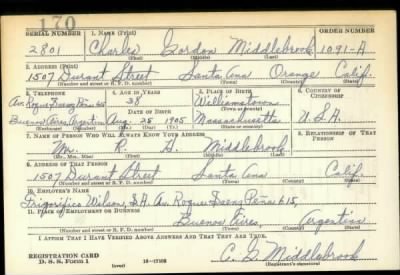 170
SERIAL NUMBER 1. NAME (Print) ORDER NUMBER
2801 Charles Gordon Middlebrook 1091-A
(First) (Middle) (Last)
2. ADDRESS (Print)
1507 Durant Street Santa Ana Orange Calif.
(Number and street or R. F. D. number) (Town) (County) (State)
3. TELEPHONE 4. AGE IN YEARS 5. PLACE OF BIRTH 6. COUNTRY OF CITIZENSHIP
Av. Roque Saenz Pena 615 38 Williamstown
DATE OF BIRTH (Town or county)
Buenos Aires, Argentina Aug. 25 1905 Massachusetts U.S.A.
(Exchange) (Number) (Mo.) (Day) (Yr.) (State or country)
7. NAME OF PERSON WHO WILL ALWAYS KNOW YOUR ADDRESS 8. RELATIONSHIP OF THAT PERSON
Mr. R. H. Middlebrook
(Mr., Mrs., Miss) (First) (Middle) (Last)
9. ADDRESS OF THAT PERSON
1507 Durant Street Santa Ana Calif.
(Number and street or R. F. D. number) (Town) (County) (State)
10. EMPLOYER'S NAME
Frigorifico Wilson, S.A. Av. Roque Saenz Peña 615,
11. PLACE OF EMPLOYMENT OR BUSINESS
Buenos Aires, Argentina
(Number and street or R. F. D. number) (Town) (County) (State)
I AFFIRM THAT I HAVE VERIFIED ABOVE ANSWERS AND THAT THEY ARE TRUE.
REGISTRATION CARD
D. S. S. Form 1 (over) C. G. Middlebrook
(Registrant's signature)